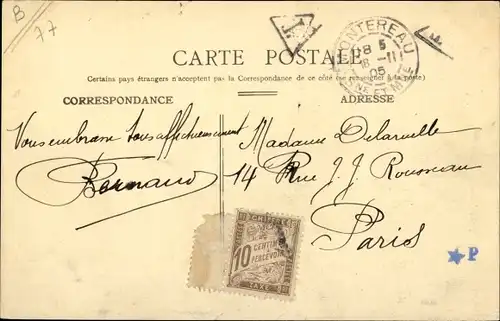 B
77
T
MONTEREAU
8 5
8 -11
05
NE ET M
CARTE POSTALE
Certains pays étrangers n'acceptent pas la Correspondance de ce côté (se renseigner à la poste)
CORRESPONDANCE
ADRESSE
Vous embrasse tous affectueusement
Bernard
Madame Delarville
14 Rue J. J. Rousseau
Paris
CHIFFRE
10 CENTIMES
A PERCEVOIR
TAXE
P